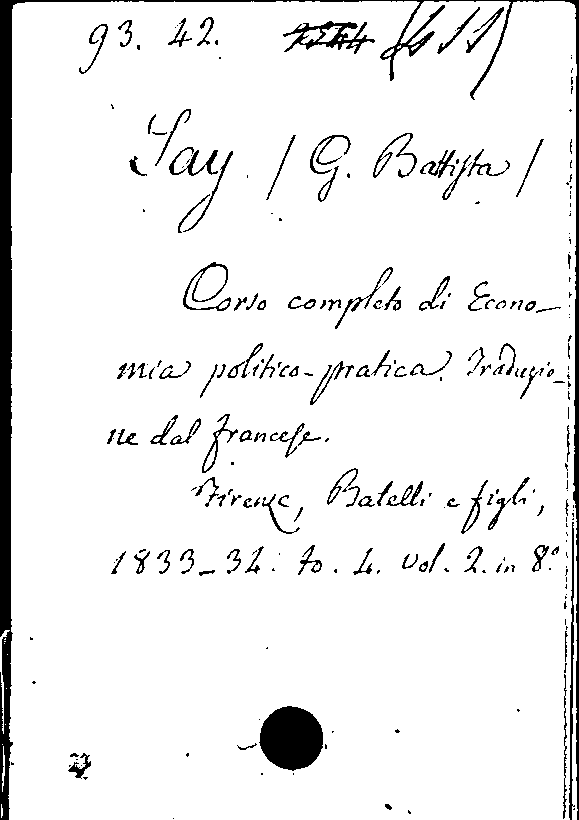 93. 42.
Say / G. Battista /
Corso completo di Econo-
mia politico-pratica. Traduzio-
ne dal francese.
Firenze, Batelli e figli,
1833-34. to. 4. vol. 2. in 8.º